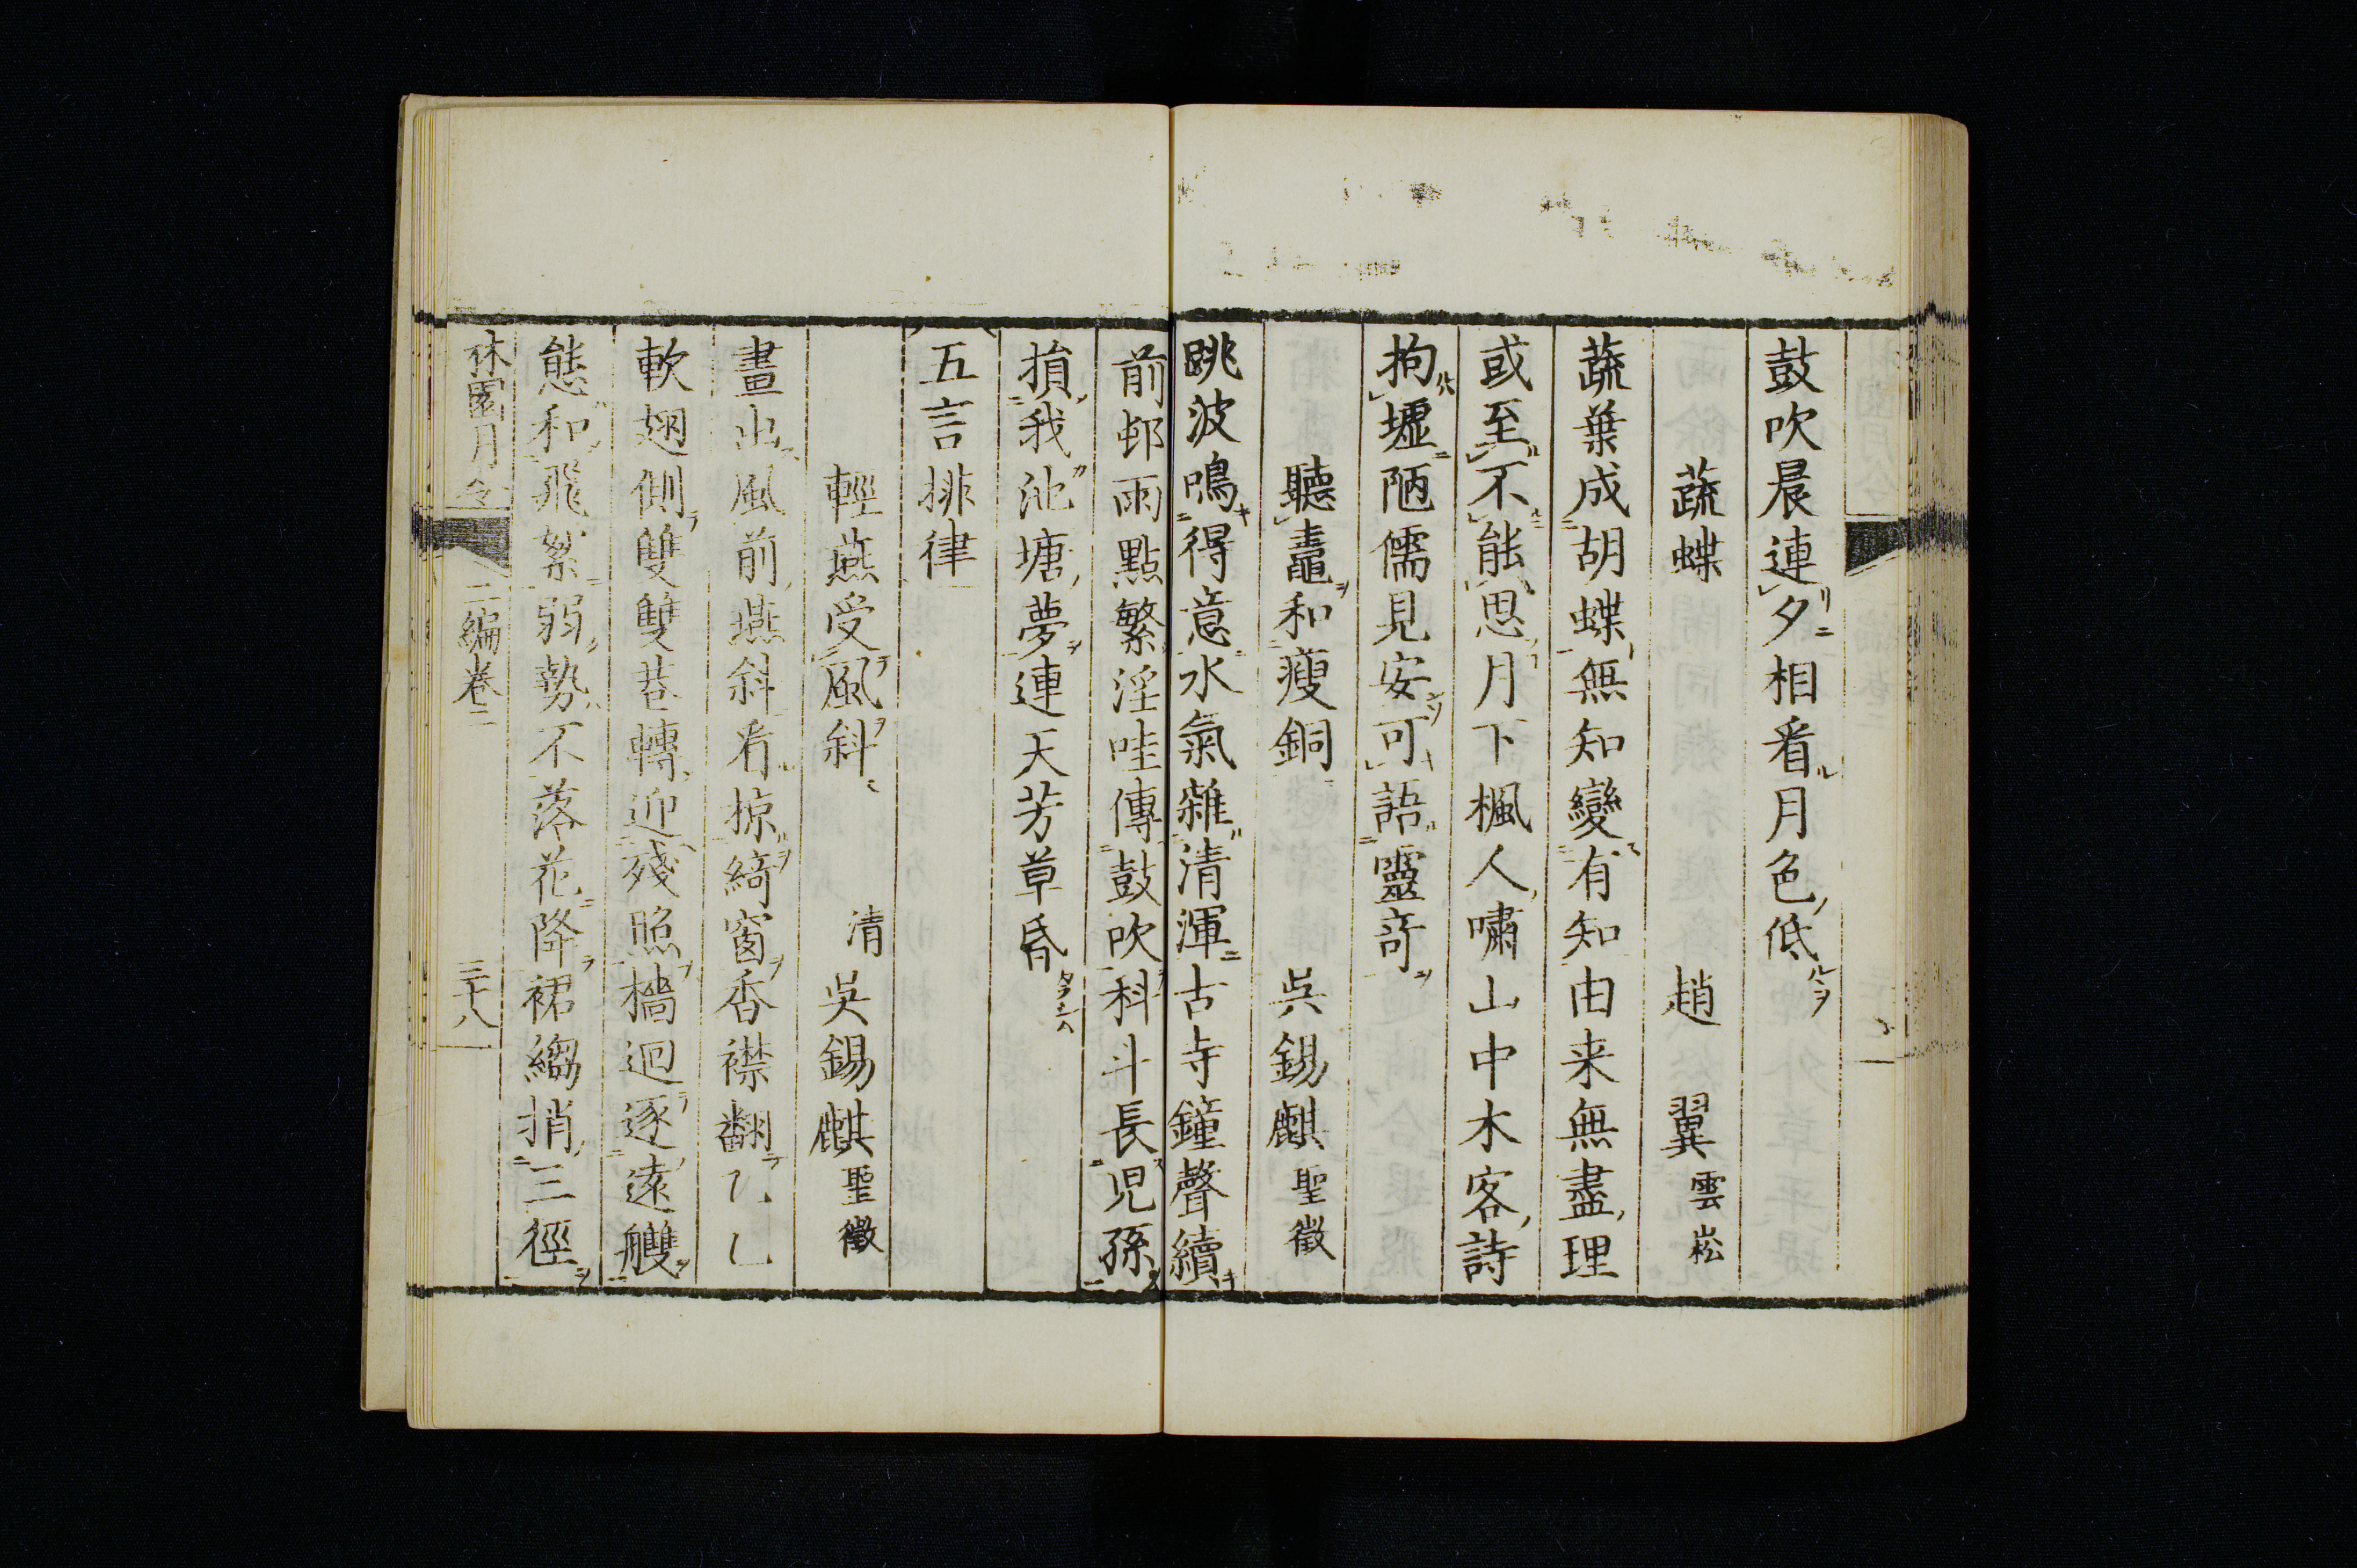 鼓吹晨連夕相看月色低
蔬蝶　趙　翼雲崧
蔬葉成胡蝶無知變有知由来無盡理
或至不能思月下楓人嘯山中木客詩
拘墟陋儒見安可語靈奇
聽鼃和瘦銅　吳錫麒聖徵
跳波鳴得意水氣雜清渾古寺鐘聲續
前邨雨點繁淫哇傳鼓吹科斗長児孫
損我池塘夢連天芳草昏
五言排律
輕燕受風斜　清吳錫麒聖徵
畫出風前燕斜看掠綺窗香襟翻乙乙
軟翅側雙雙巷轉迎殘照檣迴逐遠艭
態和飛絮弱勢不落花降裙縐捎三徑
休園月令　二編卷二　三十八